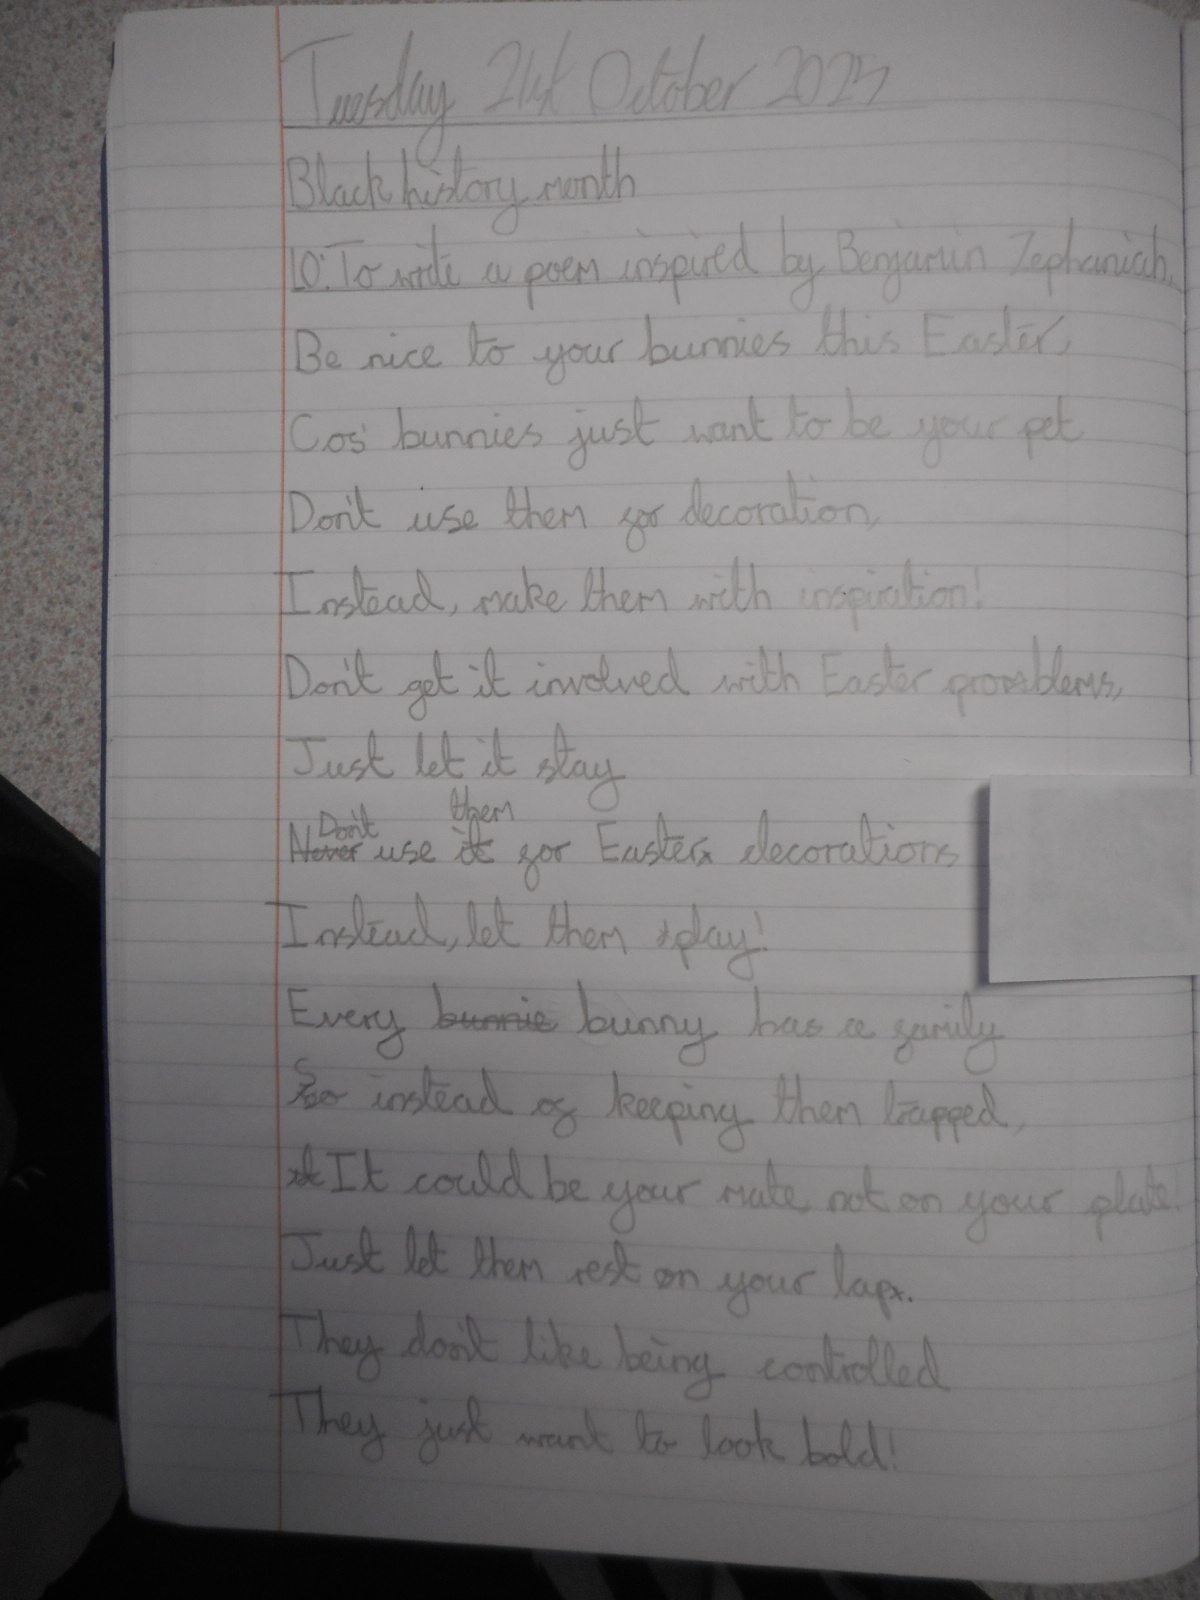 Tuesday 21st October 2025
Black history month
LO: To write a poem inspired by Benjamin Zephaniah.
Be nice to your bunnies this Easter,
Cos' bunnies just want to be your pet
Don't use them for decoration,
Instead, make them with inspiration!
Don't get it involved with Easter problems,
Just let it stay
Don't them
Never use it for Easter decorations
Instead, let them play!
Every bunnie bunny has a family
So instead of keeping them trapped,
It could be your mate, not on your plate!
Just let them rest on your lap.
They don't like being controlled
They just want to look bold!